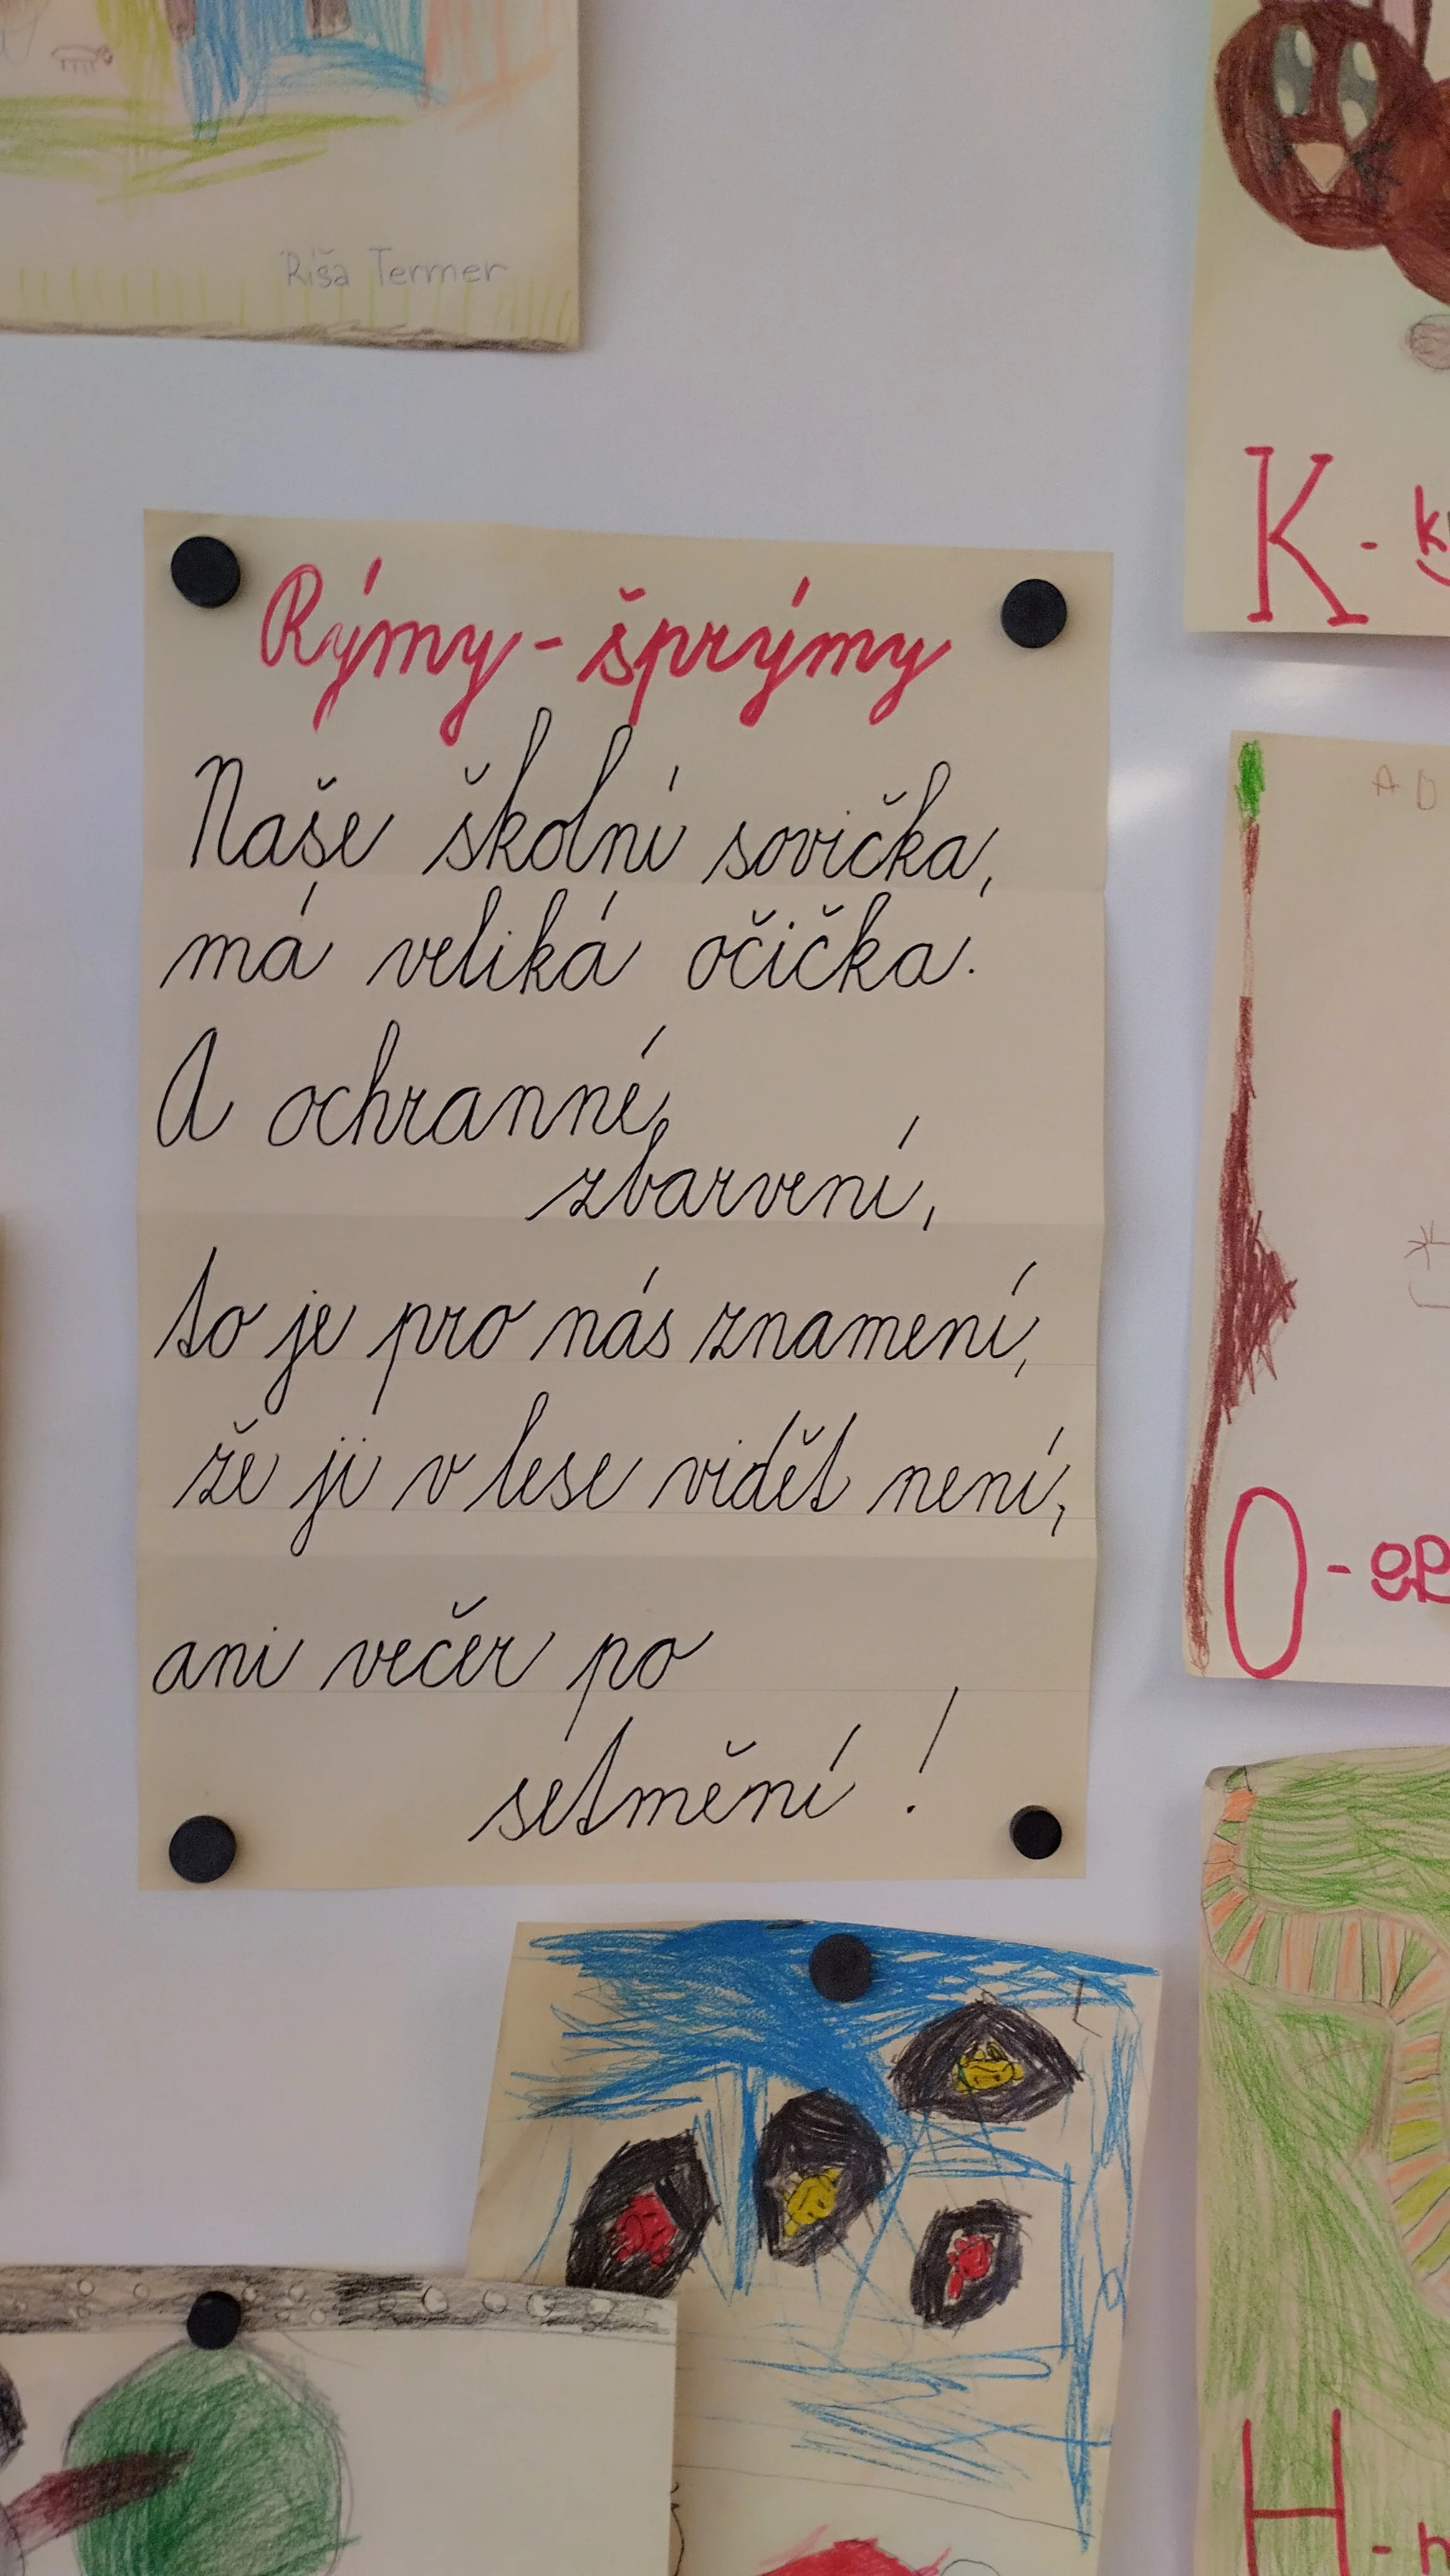 Ríša Termer
K -
Rýmy - šprýmy
Naše školní sovička,
má veliká očička.
A ochranné
zbarvení,
to je pro nás znamení,
že ji v lese vidět není,
ani večer po
setmění!
O -
H -